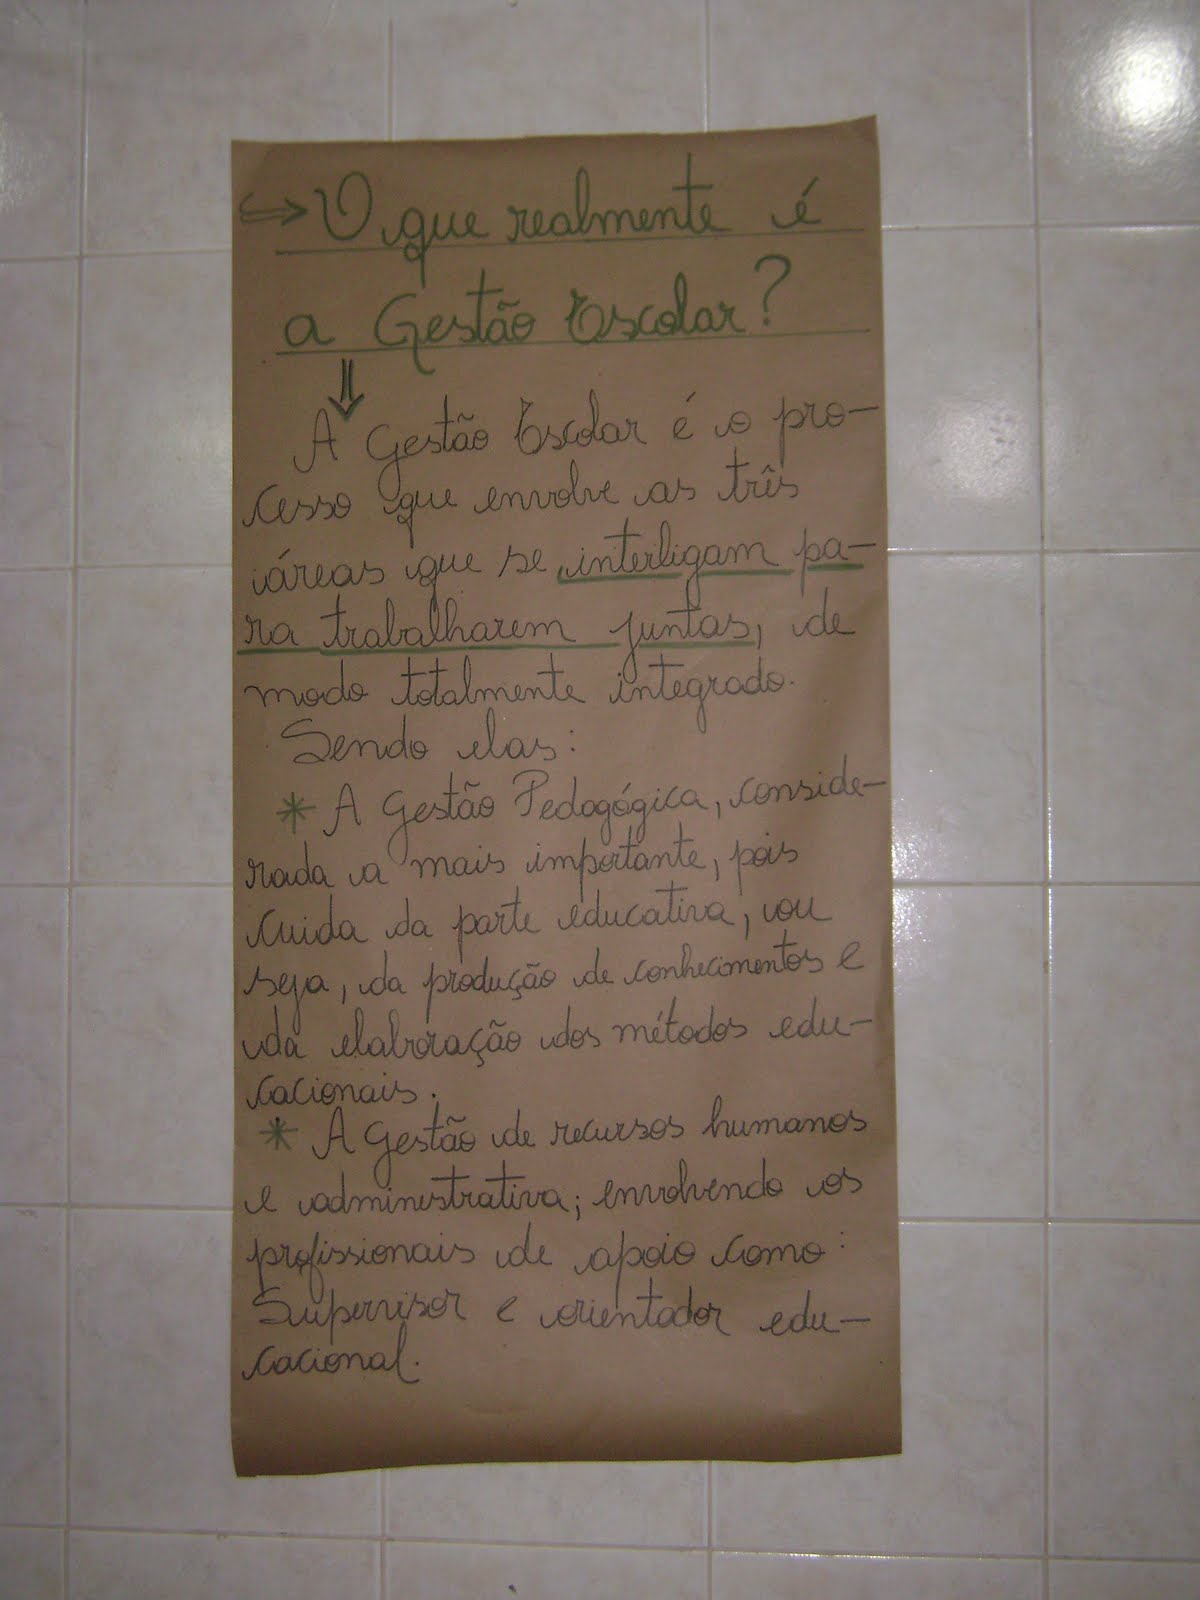 ⇒ O que realmente é
a Gestão Escolar?
⇓
A Gestão Escolar é o pro-
cesso que envolve as três
áreas que se interligam pa-
ra trabalharem juntas, de
modo totalmente integrado.
Sendo elas:
* A Gestão Pedogógica, conside-
rada a mais importante, pois
cuida da parte educativa, ou
seja, da produção de conhecimentos e
da elaboração dos métodos edu-
cacionais.
* A Gestão de recursos humanos
e administrativa; envolvendo os
profissionais de apoio como:
Supervisor e orientador edu-
cacional.